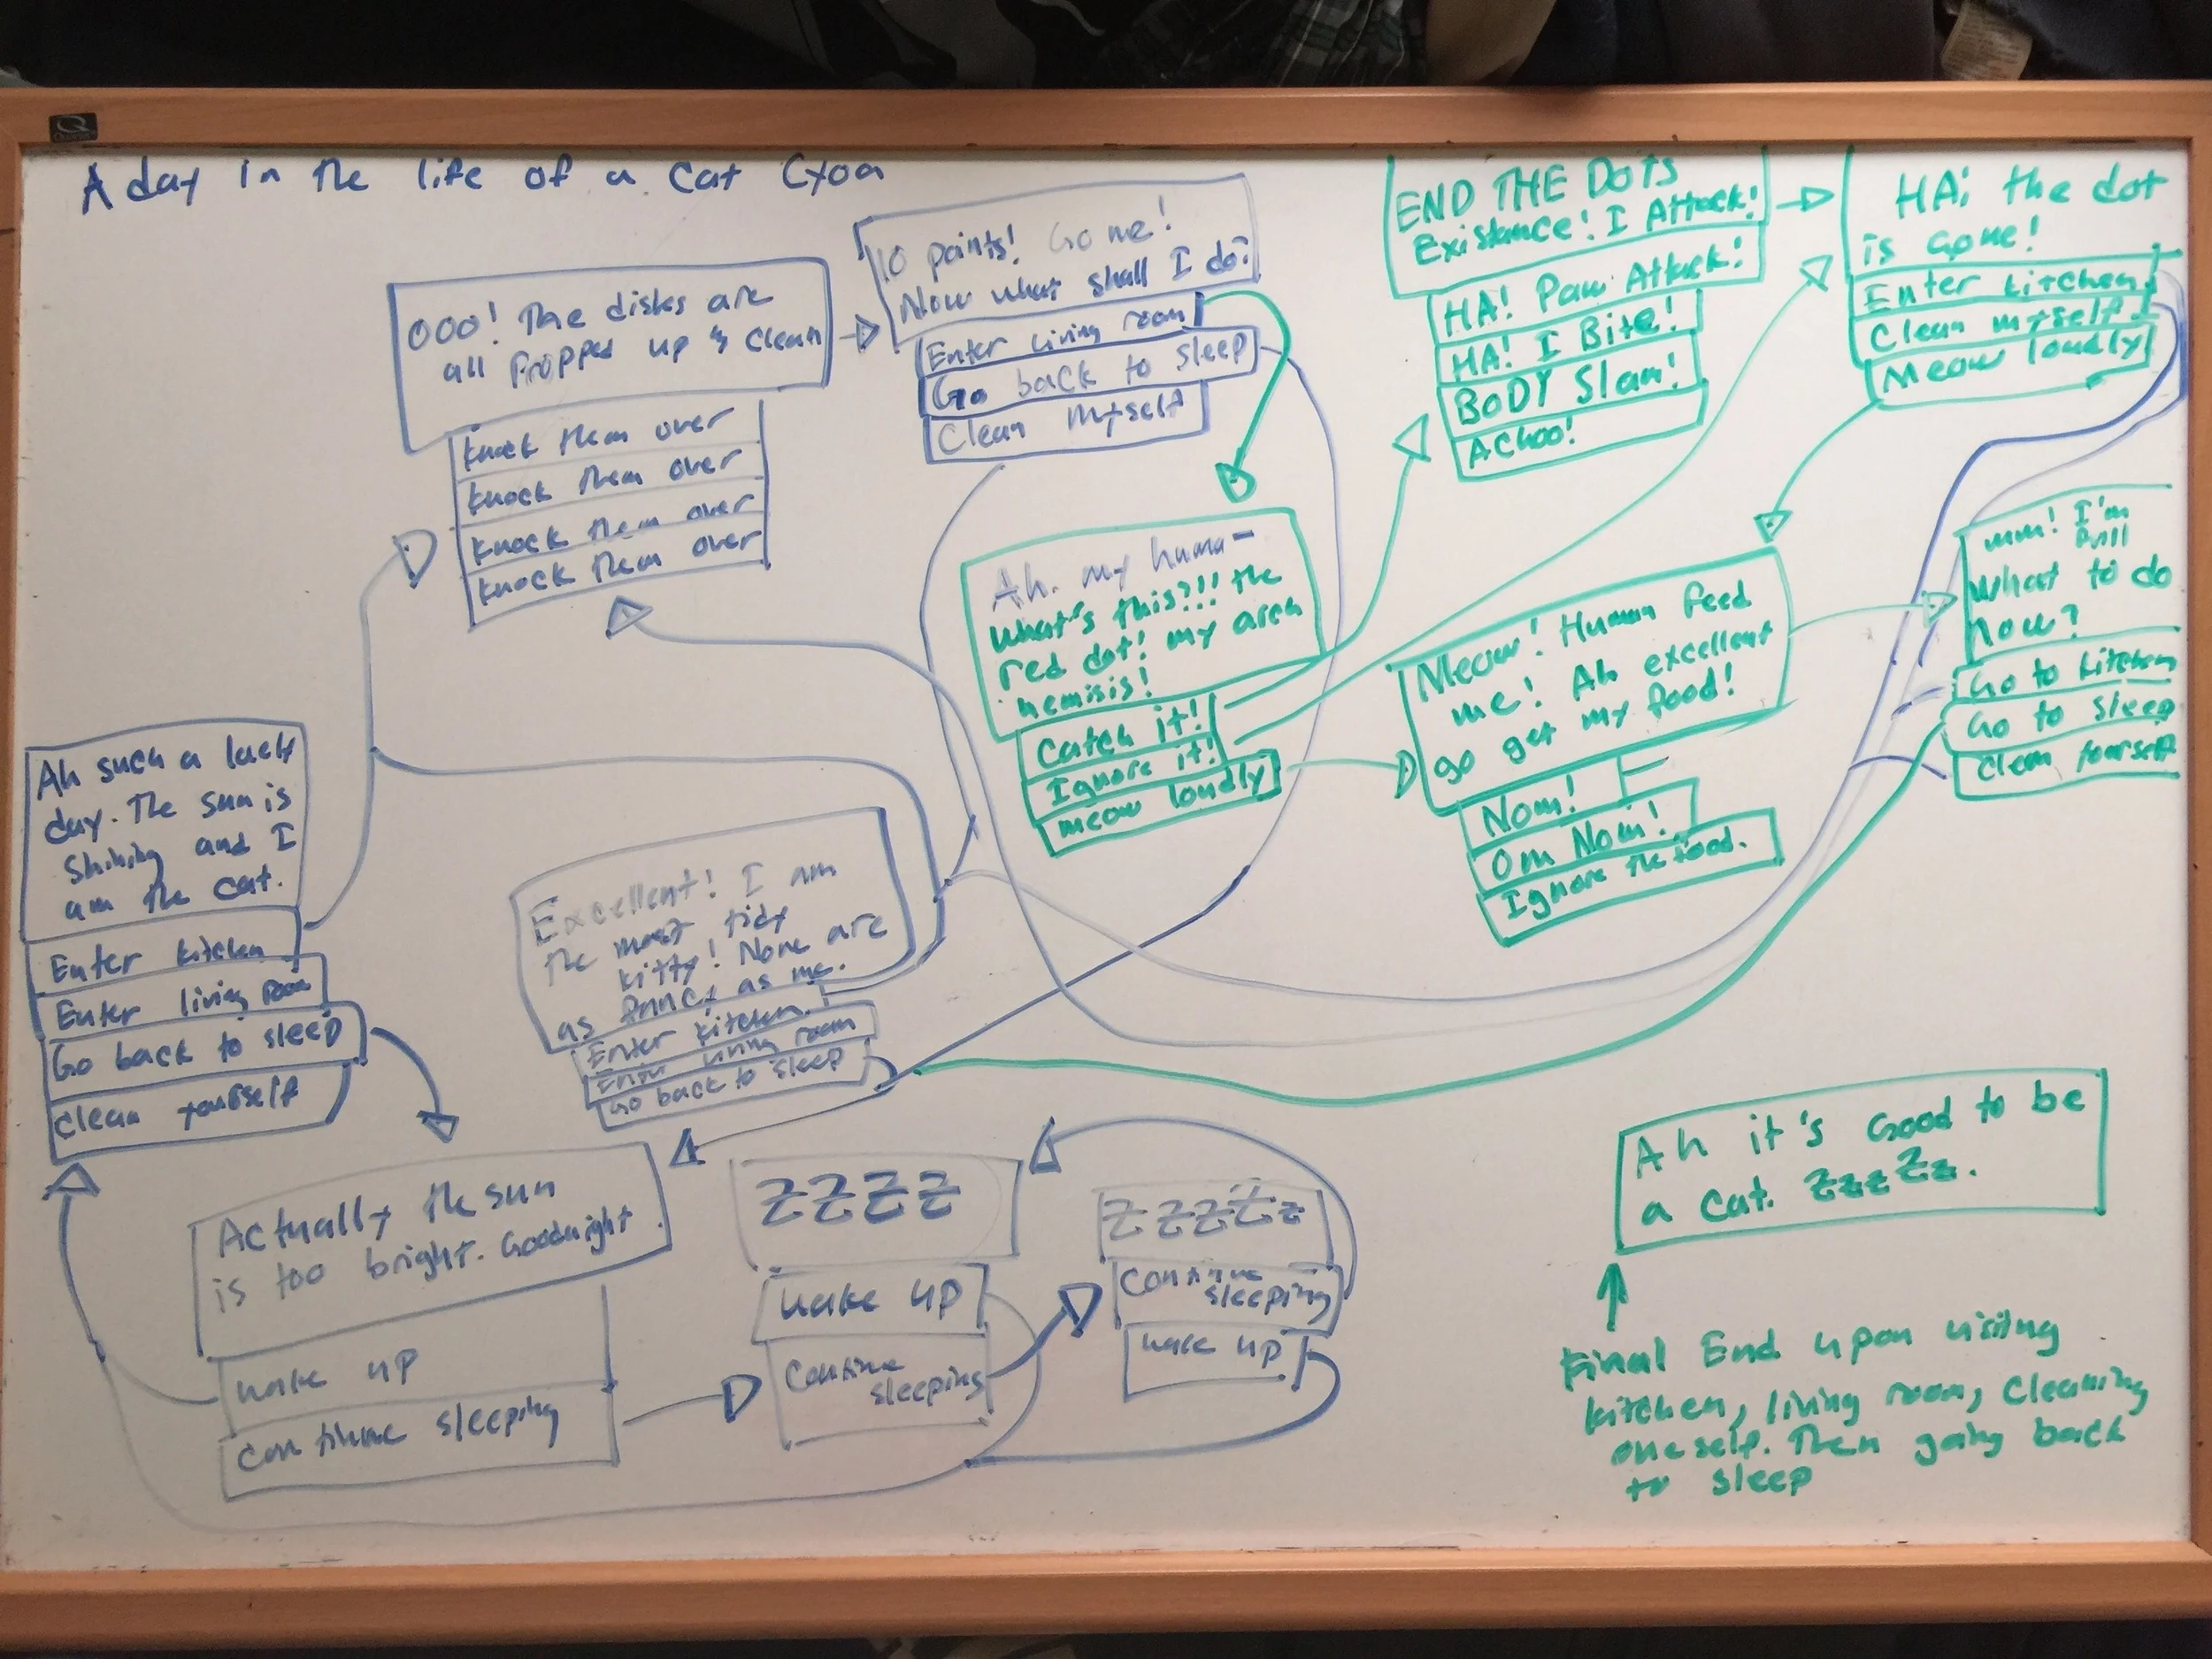 A day in the life of a cat Cyoa
OOO! The disks are
all Propped up & clean
knock them over
knock them over
knock them over
knock them over
10 points! Go me!
Now what shall I do?
Enter living room
Go back to sleep
Clean myself
END THE DOTS
Existance! I Attack!
HA! Paw Attack!
HA! I Bite!
BODY Slam!
ACHOO!
HA! the dot
is gone!
Enter kitchen
Clean myself
Meow loudly
Ah. my huma-
What's this?!!! the
red dot! my arch
nemisis!
Catch it!
Ignore it!
meow loudly
Meow! Human feed
me! Ah excellent
go get my food!
Nom!
Om Nom!
Ignore the food.
mm! I'm
full
What to do
now?
Go to kitchen
Go to sleep
clean yourself
Ah such a
day. The sun is
shining and I
am the cat.
Enter kitchen
Enter living room
Go back to sleep
clean yourself
Excellent! I am
the most tidy
kitty! None are
as fancy as me.
Enter kitchen
Enter living room
Go back to sleep
Actually the sun
is too bright. Goodnight.
wake up
continue sleeping
ZZZZ
wake up
continue
sleeping
ZZZZZ
continue
sleeping
wake up
Ah it's Good to be
a cat. ZzzZz.
Final End upon visiting
kitchen, living room, cleaning
oneself. Then going back
to sleep